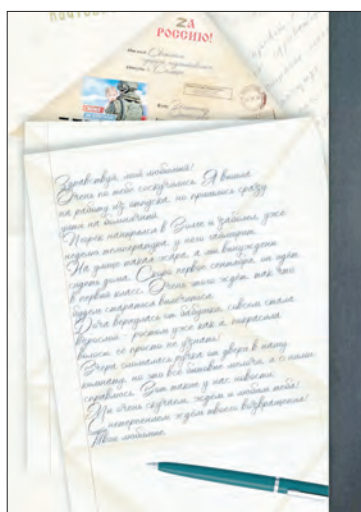 ZА
РОССИЮ!
Здравствуй, мой любимый!
Очень по тебе соскучилась. Я вышла
на работу из отпуска, но пришлось сразу
уйти на больничный.
Тигрёк в Волге и заболел, уже
неделю температура, у него гайморит.
На улице такая жара, а мы вынуждены
сидеть дома. Скоро первое сентября, он идёт
в первый класс. Очень этого ждёт, так что
будем стараться вылечиться.
Доча вернулась от бабушки, совсем стала
взрослой - ростом уже как я, покрасила
волосы, её просто не узнать!
Вчера сломалась ручка от двери в нашу
комнату, но это всё бытовые мелочи, я с ними
справлюсь. Вот такие у нас новости.
Мы очень скучаем, ждём и любим тебя!
С нетерпением ждём твоего возвращения!
Твои любимые.